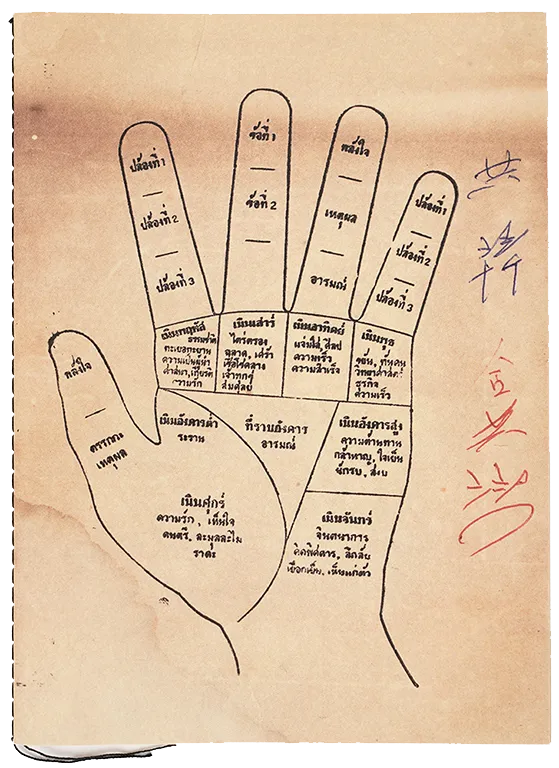 ปล้องที่ 1
ปล้องที่ 2
ปล้องที่ 3
ข้อที่ 1
ข้อที่ 2
พลังใจ
เหตุผล
อารมณ์
ปล้องที่ 1
ปล้องที่ 2
ปล้องที่ 3
พลังใจ
ตรรกะ
เหตุผล
เนินพฤหัส
ทะเยอทะยาน
ความเป็นผู้นำ
ศาสนา, เกียรติ
ความรัก
เนินเสาร์
ไตร่ตรอง
ฉลาด, เศร้า
เจ้าทุกข์
สันโดษ
เนินอาทิตย์
แจ่มใส, ศิลป
ความเร็ว
ความสำเร็จ
เนินพุธ
วิทยาศาสตร์
ธุรกิจ
ความเร็ว
เนินอังคารต่ำ
ระราน
ที่ราบอังคาร
อารมณ์
เนินอังคารสูง
ความต้านทาน
กล้าหาญ, ใจเย็น
นักรบ, สงบ
เนินศุกร์
ความรัก, เห็นใจ
ดนตรี, ละมุลละไม
ราคะ
เนินจันทร์
จินตนาการ
คิดพิศดาร, ลึกลับ
เยือกเย็น, เห็นแก่ตัว
共